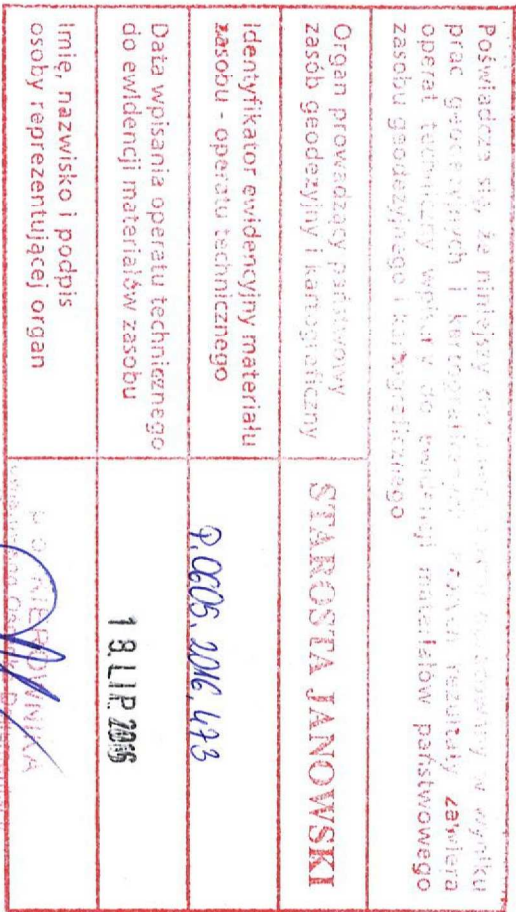 Poświadcza się, że niniejszy w wyniku
prac geodezyjnych i kartograficznych rezultaty zawiera
operat techniczny wpisany do ewidencji materiałów państwowego
zasobu geodezyjnego i kartograficznego
Organ prowadzący państwowy
zasób geodezyjny i kartograficzny
STAROSTA JANOWSKI
Identyfikator ewidencyjny materiału
zasobu - operatu technicznego
P.0605.2016.473
Data wpisania operatu technicznego
do ewidencji materiałów zasobu
18 LIP. 2016
Imię, nazwisko i podpis
osoby reprezentującej organ
KIEROWNIKA